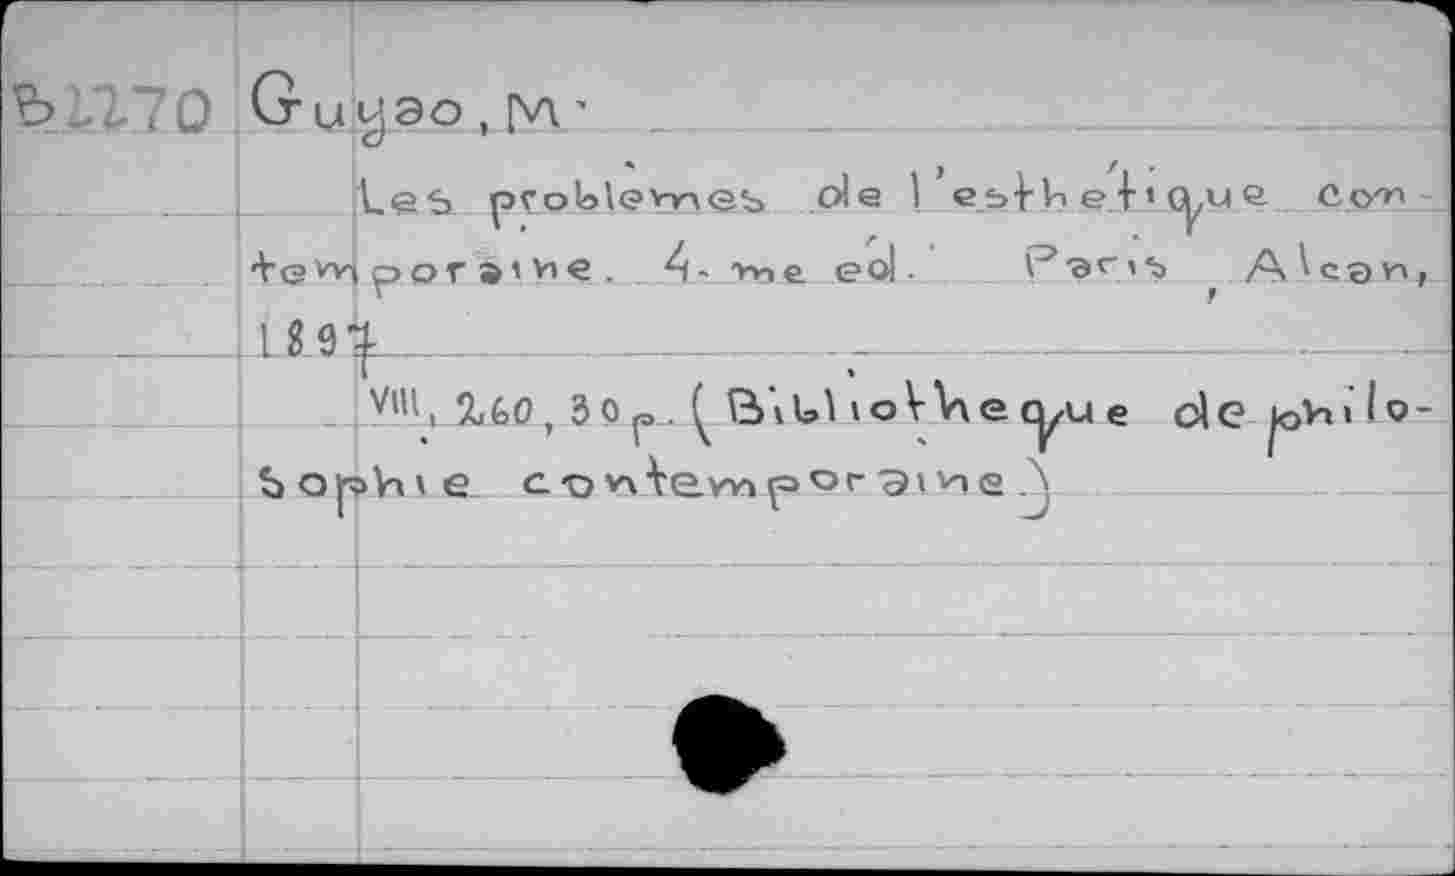 Ъ 2270 Guyao, M.
Les problèmes de l'esthétique con-
temporaine. 4-me éd. Paris, Alcan,
1897
VIII, 260, 30 p. (Bibliothèque de philo-
sophie contemporaine)